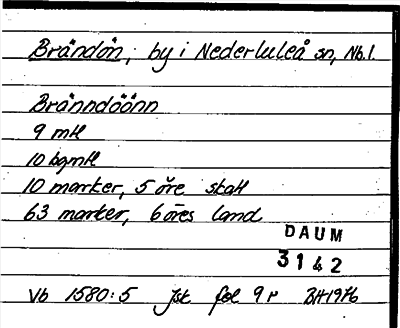 Brändön, by i Nederluleå sn, Nb.l.
Bränndöönn
9 mtl
10 bgmtl
10 marker, 5 öre skatt
63 marker, 6 öres land
DAUM
3142
Vb 1580:5 Jsk fol 9r BH1976